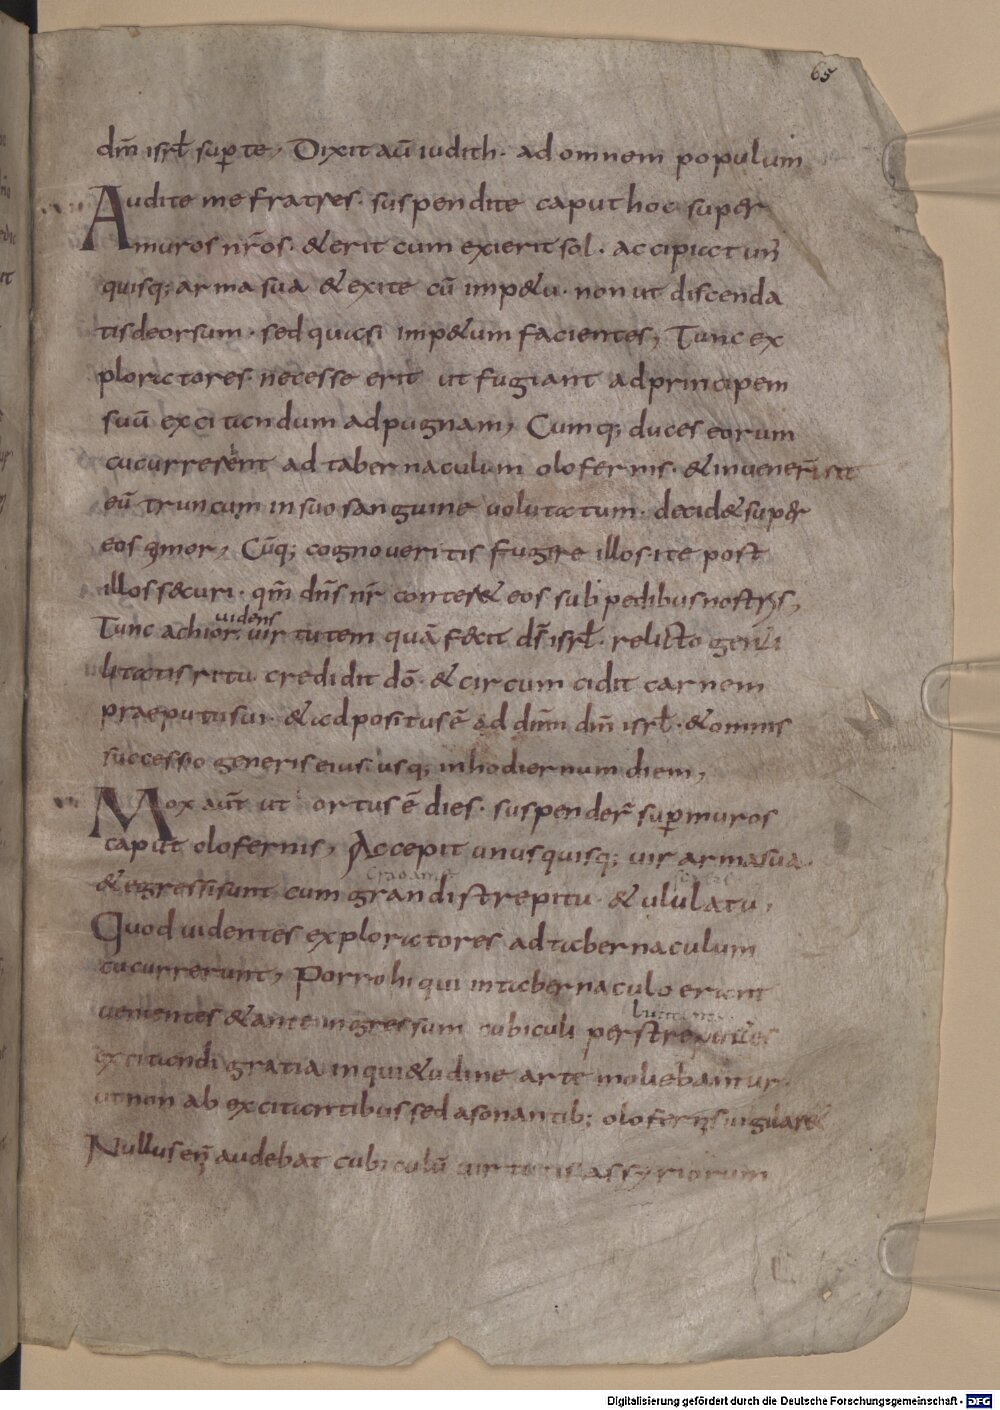 65
dm̄ isrl̄ sup te, Dixit aū iudith· ad omnem populum
Audite me fratres· suspendite caput hoc super
muros nr̄os· & erit cum exierit sol· accipiat un̄
quisq; arma sua & exite cū imp&u· non ut discenda
tis deorsum· sed quasi imp&um facientes, Tunc ex
ploratores necesse erit ut fugiant ad principem
suū excitandum ad pugnam, Cumq; duces eorum
cucurresent ad tabernaculum olofernis· & invener̄ int
eū truncum in suo sanguine volutatum· decid& super
eos timor, Cūq; cognoveritis fugere illos· ite post
illos securi· qm̄ dn̄s nr̄ conter& eos sub pedibus nostris,
videns
Tunc achior· virtutem quā fecit ds̄ isrl̄· relicto genti
litatis ritu credidit dō· & circumcidit carnem
praeputii sui· & adpositus ē ad dn̄m dm̄ isrl̄· & omnis
successio generis eius usq; in hodiernum diem,
Mox aūt ut ortus ē dies· suspender̄ sup muros
caput olofernis, Accepit unusquisq; vir arma sua·
& egressi sunt cum grandi strepitu· & ululatu,
Quod videntes exploratores ad tabernaculum
cucurrerunt, Porro hi qui in tabernaculo erant
venientes & ante ingressum cubiculi perstrepentes
excitandi gratia inqui&udine arte moliebantur·
ut non ab excitantibus sed a sonantib; olofernis vigilar&
Nullus eni audebat cubiculū virtutis assyriorum
Digitalisierung gefördert durch die Deutsche Forschungsgemeinschaft - DFG